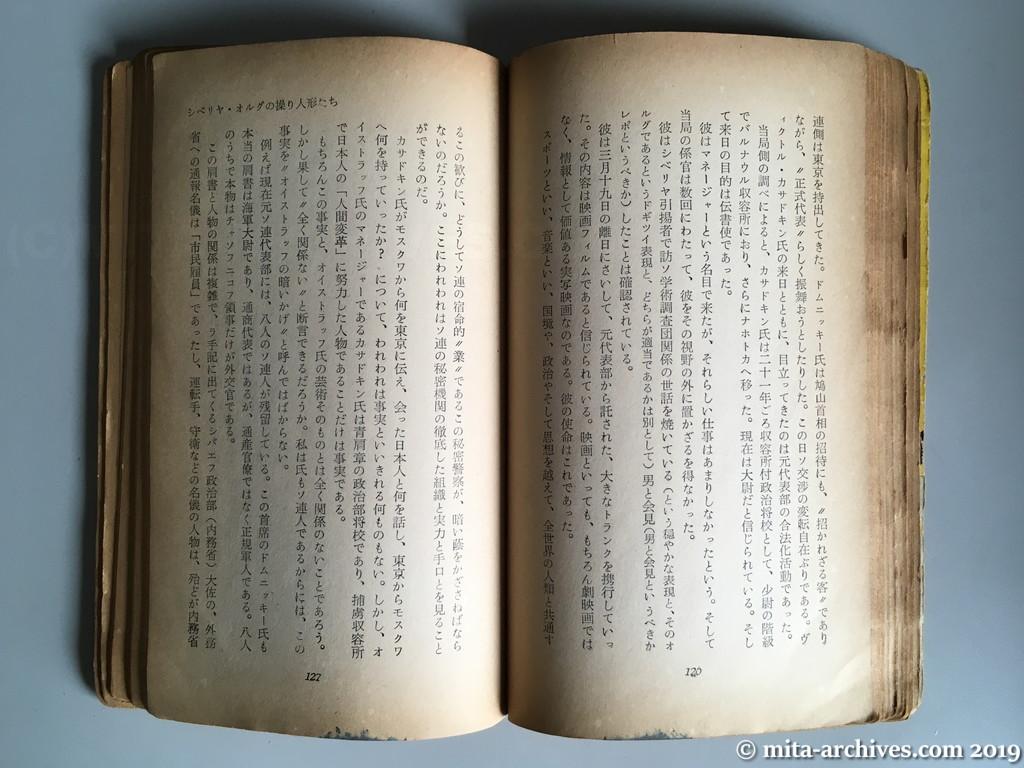 連側は東京を持出してきた。ドムニッキー氏は鳩山首相の招待にも、〝招かれざる客〟であり
ながら、〝正式代表〟らしく振舞おうとしたりした。この日ソ交渉の変転自在ぶりである。ヴ
ィクトル・カサドキン氏の来日とともに、目立ってきたのは元代表部の合法化活動であった。
当局側の調べによると、カサドキン氏は二十一年ごろ収容所付政治将校として、少尉の階級
でバルナウル収容所におり、さらにナホトカへ移った。現在は大尉だと信じられている。そし
て来日の目的は伝書使であった。
彼はマネージャーという名目で来たが、それらしい仕事はあまりしなかったという。そして
当局の係官は数回にわたって、彼をその視野の外に置かざるを得なかった。
彼はシベリヤ引揚者で訪ソ学術調査団関係の世話を焼いている(という穏やかな表現と、そのオ
ルグであるというドギツイ表現と、どちらが適当であるかは別として)男と会見(男と会見というべきか
レポというべきか)したことは確認されている。
彼は三月十九の離日にさいして、元代表部から託された、大きなトランクを携行していっ
た。その内容は映画フィルムであると信じられている。映画といっても、もちろん劇映画では
なく、情報として価値ある実写映画なのである。彼の使命はこれであった。
スポーツといい、音楽といい、国境や、政治やそして思想を越えて、全世界の人類と共通す
120
シベリヤ・オルグの操り人形たち
るこの歓びに、どうしてソ連の宿命的〝業〟であるこの秘密警察が、暗い蔭をかざさねばなら
ないのだろうか。ここにわれわれはソ連の秘密機関の徹底した組織と実力と手口とを見ること
ができるのだ。
カサドキン氏がモスクワから何を東京に伝え、会った日本人と何を話し、東京からモスクワ
へ何を持っていったか?について、われわれは事実といいきれる何ものもない。しかし、オ
イストラッフ氏のマネージャーであるカサドキン氏は青肩章の政治部将校であり、捕虜収容所
で日本人の「人間変革」に努力した人物であることだけは事実である。
もちろんこの事実と、オイストラッフ氏の芸術そのものとは全く関係のないことであろう。
しかし果して〝全く関係ない〟と断言できるだろうか。私は氏もソ連人であるからには、この
事実を〝オイストラッフの暗いかげ〟と呼んではばからない。
例えば現在元ソ連代表部には、八人のソ連人が残留している。この首席のドムニッキー氏も
本当の肩書は海軍大尉であり、通商代表ではあるが、通産官僚ではなく正規軍人である。八人
のうちで本物はチャソフニコフ領事だけが外交官である。
この肩書と人物の関係は複雑で、ラ手記に出てくるシバエフ政治部(内務省)大佐の、外務
省への通報名儀は「市民雇員」であったし、運転手、守衛などの名儀の人物は、殆どが内務省
121
© mita-archives.com 2019